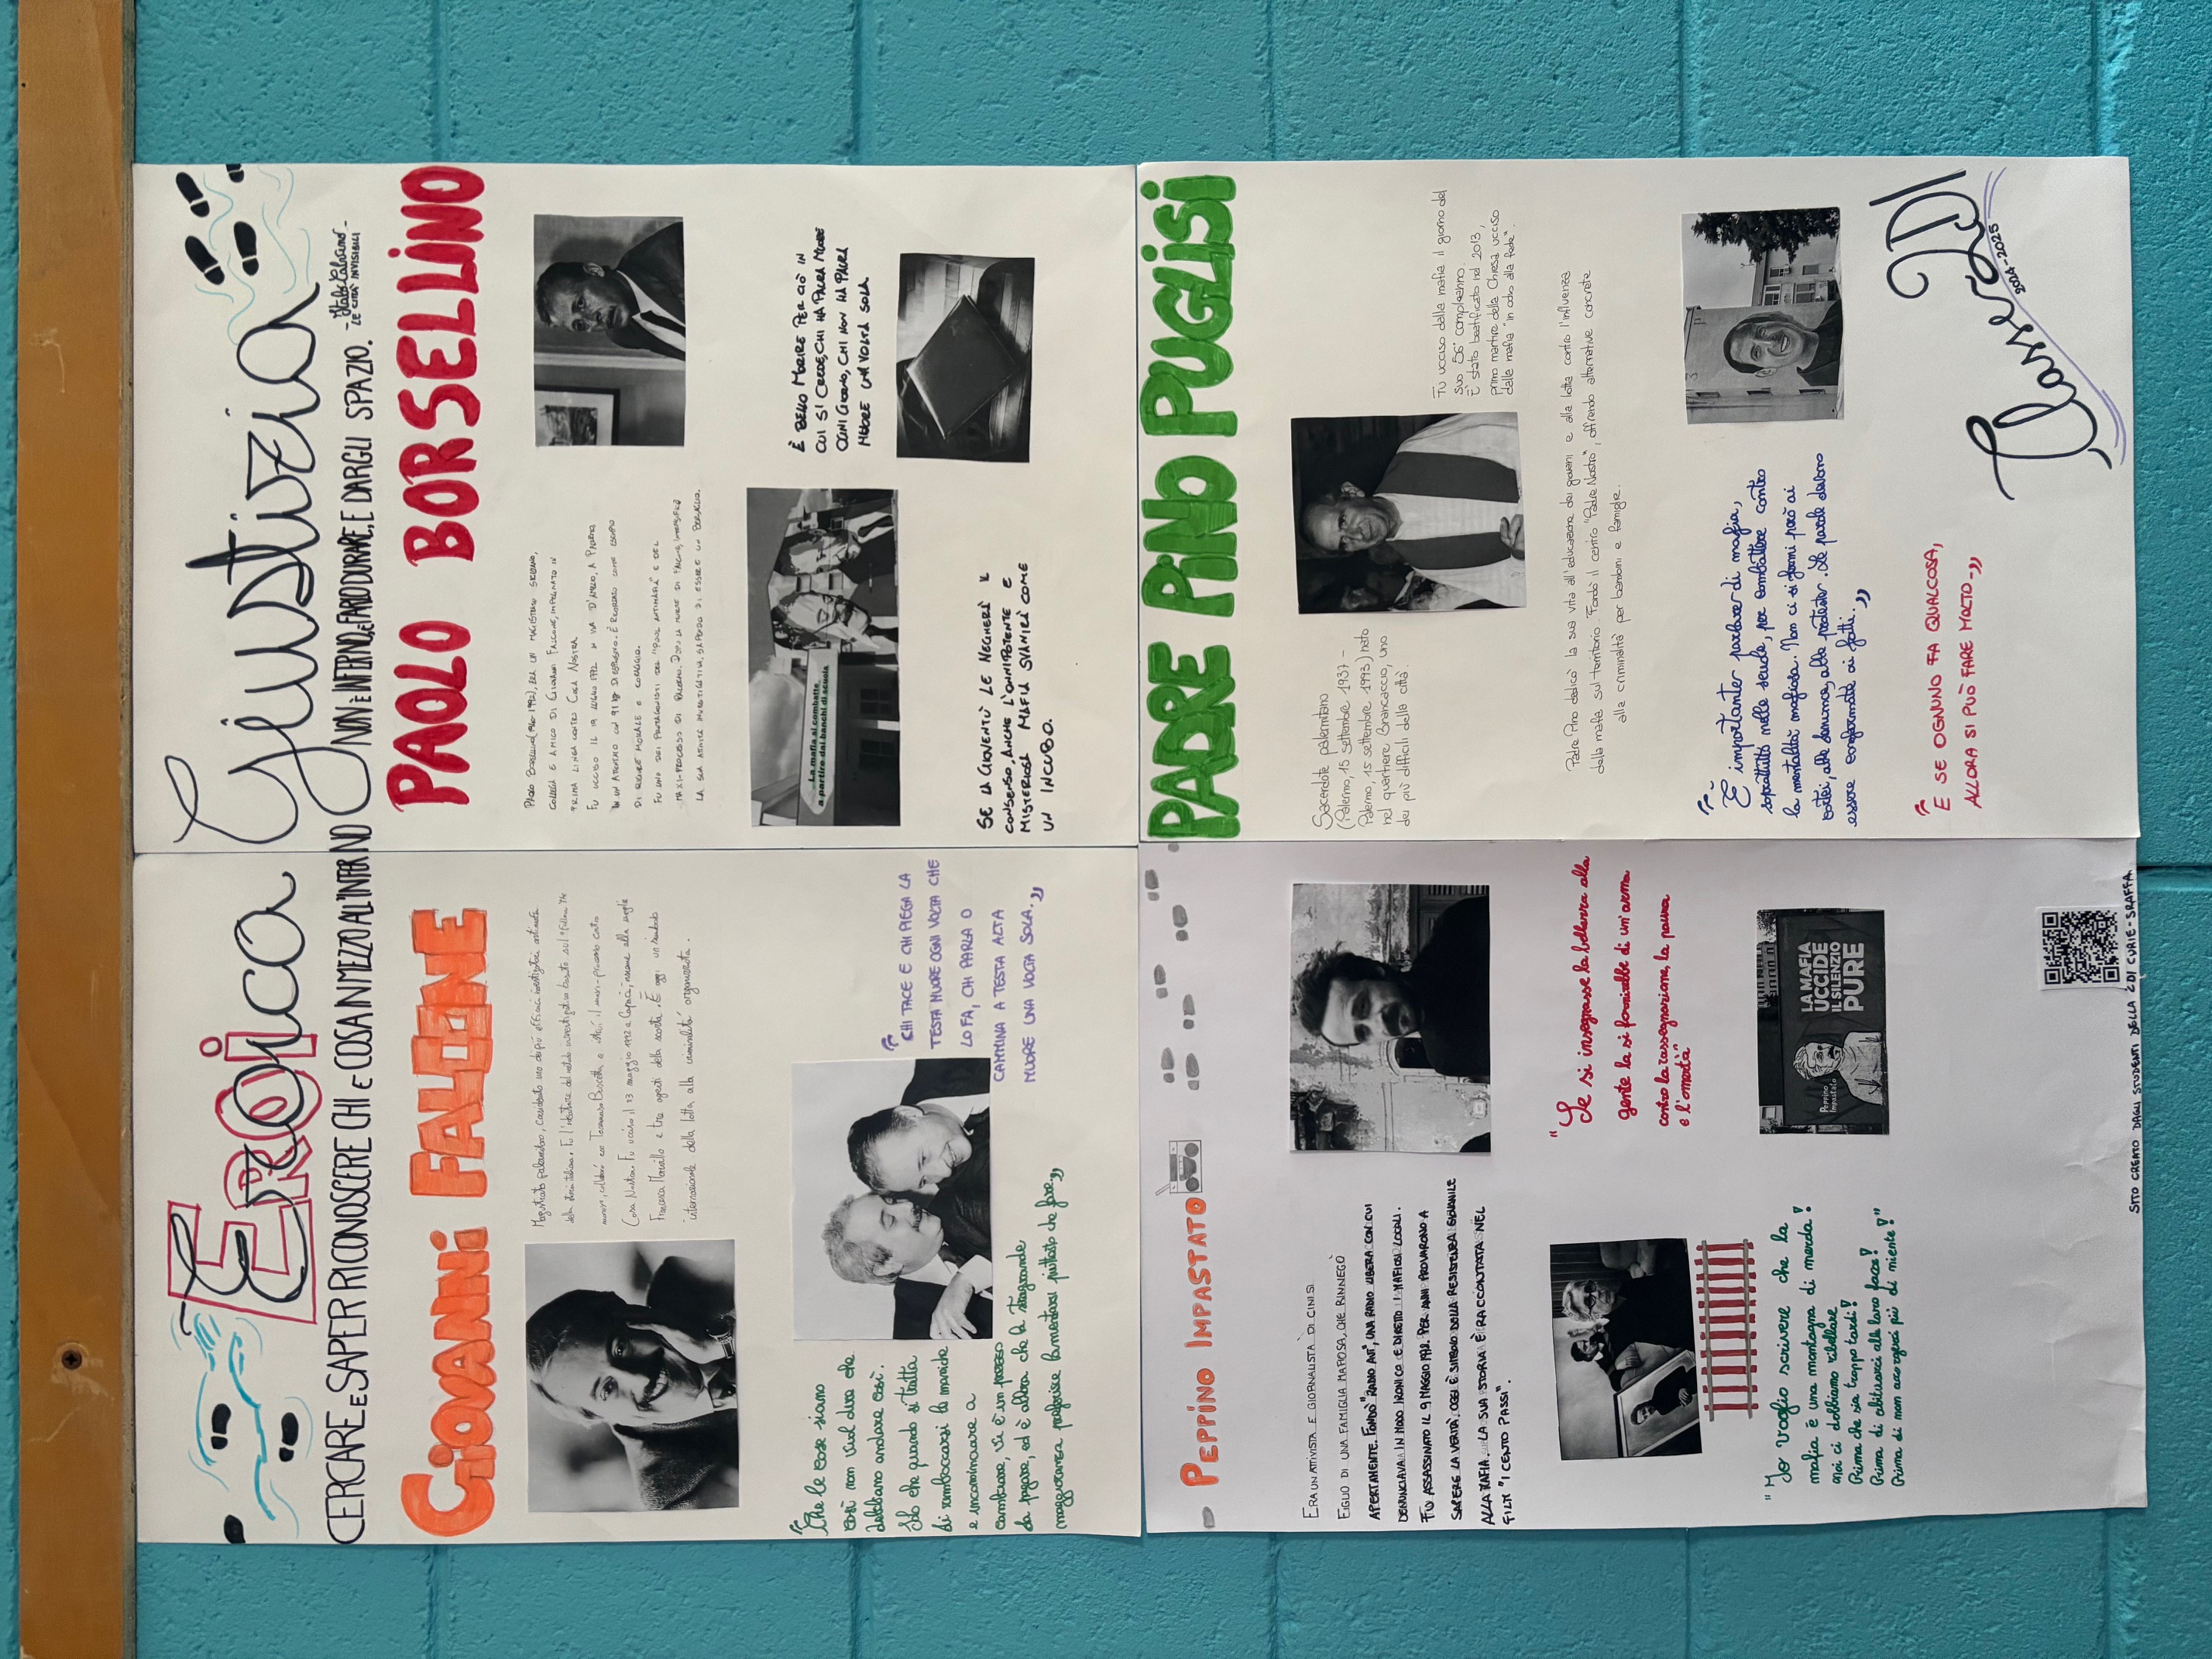 Eroica Giustizia
EROI
CERCARE E SAPER RICONOSCERE CHI E COSA IN MEZZO ALL'INFERNO NON È INFERNO, E FARLO DURARE, E DARGLI SPAZIO.
- Italo Calvino -
LE CITTÀ INVISIBILI
GIOVANNI FALCONE
Magistrato palermitano, considerato uno dei più efficaci investigatori antimafia
della storia italiana. Fu l'ideatore del metodo investigativo basato sul "Follow the
money", collaborò con Tommaso Buscetta e istruì il maxi-processo contro
Cosa Nostra. Fu ucciso il 23 maggio 1992 a Capaci, insieme alla moglie
Francesca Morvillo e tre agenti della scorta. È oggi un simbolo
internazionale della lotta alla criminalità organizzata.
"Che le cose siano
così non vuol dire che
debbano andare così.
Solo che quando si tratta
di rimboccarsi le maniche
e incominciare a
cambiare, vi è un prezzo
da pagare, ed è allora che la stragrande
maggioranza preferisce lamentarsi piuttosto che fare."
"CHI TACE E CHI PIEGA LA
TESTA MUORE OGNI VOLTA CHE
LO FA, CHI PARLA O
CAMMINA A TESTA ALTA
MUORE UNA VOLTA SOLA."
PAOLO BORSELLINO
PAOLO BORSELLINO (1940-1992), ERA UN MAGISTRATO SICILIANO,
COLLEGA E AMICO DI GIOVANNI FALCONE, IMPEGNATO IN
PRIMA LINEA CONTRO COSA NOSTRA.
FU UCCISO IL 19 LUGLIO 1992 IN VIA D'AMELIO, A PALERMO,
IN UN ATTENTATO CON 91 kg DI ESPLOSIVO. È RICORDATO COME ESEMPIO
DI RIGORE MORALE E CORAGGIO.
FU UNO DEI PROTAGONISTI DEL "POOL ANTIMAFIA" E DEL
MAXI-PROCESSO DI PALERMO. DOPO LA MORTE DI FALCONE, INTENSIFICÒ
LA SUA ATTIVITÀ INVESTIGATIVA, SAPENDO DI ESSERE UN BERSAGLIO.
La mafia si combatte
a partire dai banchi di scuola
È BELLO MORIRE PER CIÒ IN
CUI SI CREDE, CHI HA PAURA MUORE
OGNI GIORNO, CHI NON HA PAURA
MUORE UNA VOLTA SOLA.
SE LA GIOVENTÙ LE NEGHERÀ IL
CONSENSO, ANCHE L'ONNIPOTENTE E
MISTERIOSA MAFIA SVANIRÀ COME
UN INCUBO.
PEPPINO IMPASTATO
ERA UN ATTIVISTA E GIORNALISTA DI CINISI
FIGLIO DI UNA FAMIGLIA MAFIOSA, CHE RINNEGÒ
APERTAMENTE. FONDÒ "RADIO AUT", UNA RADIO LIBERA CON CUI
DENUNCIAVA IN MODO IRONICO E DIRETTO I MAFIOSI LOCALI.
FU ASSASSINATO IL 9 MAGGIO 1978. PER ANNI PROVARONO A
SAPERE LA VERITÀ. OGGI È SIMBOLO DELLA RESISTENZA GIOVANILE
ALLA MAFIA. LA SUA STORIA È RACCONTATA NEL
FILM "I CENTO PASSI".
"Se si insegnasse la bellezza alla
gente la si fornirebbe di un'arma
contro la rassegnazione, la paura
e l'omertà"
"Io voglio scrivere che la
mafia è una montagna di merda!
noi ci dobbiamo ribellare
Prima che sia troppo tardi!
Prima di abituarci alle loro facce!
Prima di non accorgerci più di niente!"
Peppino
Impastato
LA MAFIA
UCCIDE
IL SILENZIO
PURE
SITO CREATO DAGLI STUDENTI DELLA 2DI CURIE-SRAFFA
PADRE PINO PUGLISI
Sacerdote palermitano
(Palermo, 15 settembre 1937 -
Palermo, 15 settembre 1993) nato
nel quartiere Brancaccio, uno
dei più difficili della città.
Fu ucciso dalla mafia il giorno del
suo 56° compleanno.
È stato beatificato nel 2013,
primo martire della Chiesa ucciso
dalla mafia "in odio alla fede".
Padre Pino dedicò la sua vita all'educazione dei giovani e alla lotta contro l'influenza
della mafia sul territorio. Fondò il centro "Padre Nostro", offrendo alternative concrete
alla criminalità per bambini e famiglie.
"È importante parlare di mafia,
soprattutto nelle scuole, per combattere contro
la mentalità mafiosa. Non ci si fermi però ai
cortei, alle denunce, alle proteste. Le parole devono
essere confermate ai fatti."
"E SE OGNUNO FA QUALCOSA,
ALLORA SI PUÒ FARE MOLTO."
Classe 2DI
2024-2025